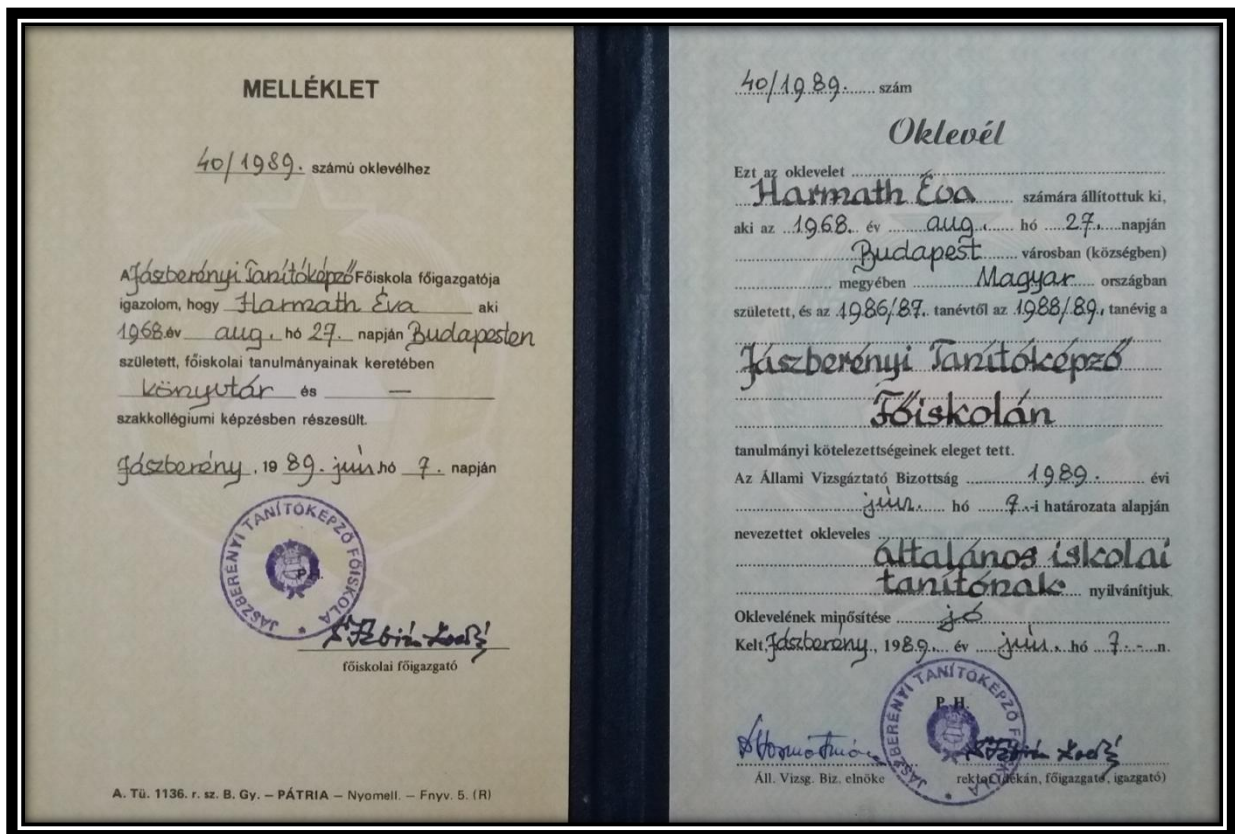 MELLÉKLET
40/1989. számú oklevélhez
A Jászberényi Tanítóképző Főiskola főigazgatója
igazolom, hogy Harmath Éva aki
1968. év aug. hó 27. napján Budapesten
született, főiskolai tanulmányainak keretében
könyvtár és —
szakkollégiumi képzésben részesült.
Jászberény, 1989. jún. hó 7. napján
JÁSZBERÉNYI TANÍTÓKÉPZŐ FŐISKOLA
P.H.
főiskolai főigazgató
A. Tü. 1136. r. sz. B. Gy. – PÁTRIA – Nyomell. – Fnyv. 5. (R)
40/1989. szám
Oklevél
Ezt az oklevelet
Harmath Éva számára állítottuk ki,
aki az 1968. év aug. hó 27. napján
Budapest városban (községben)
megyében Magyar országban
született, és az 1986/87. tanévtől az 1988/89. tanévig a
Jászberényi Tanítóképző
Főiskolán
tanulmányi kötelezettségeinek eleget tett.
Az Állami Vizsgáztató Bizottság 1989. évi
jún. hó 7.-i határozata alapján
nevezettet okleveles
általános iskolai
tanítónak nyilvánítjuk.
Oklevelének minősítése jó
Kelt, Jászberény, 1989. év jún. hó 7. n.
JÁSZBERÉNYI TANÍTÓKÉPZŐ FŐISKOLA
P. H.
Áll. Vizsg. Biz. elnöke rektor (dékán, főigazgató, igazgató)